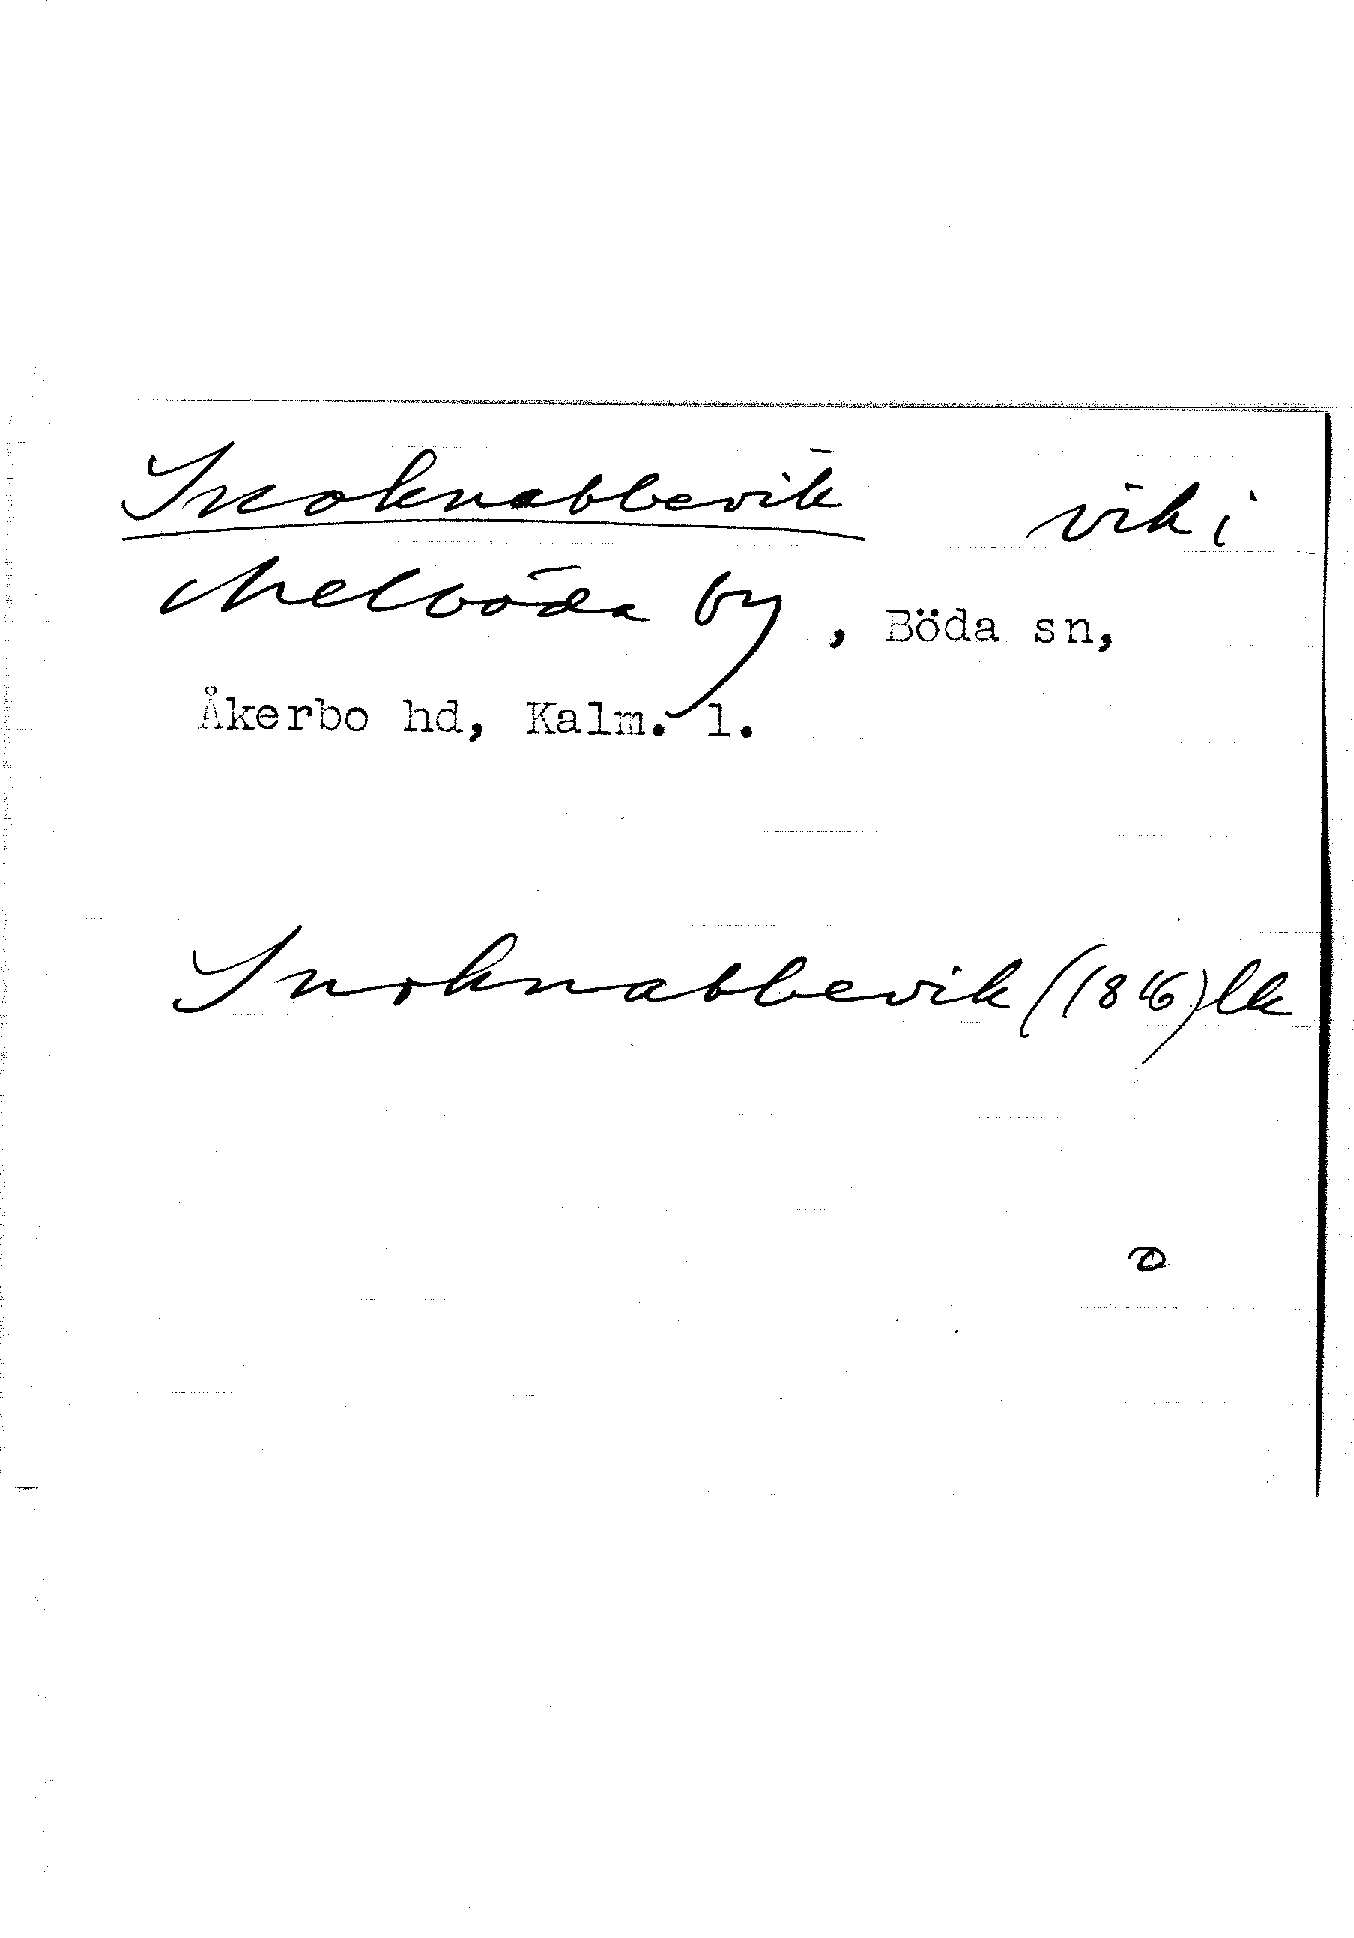 Snoknabbevik vik i
Melböda by, Böda sn,
Åkerbo hd, Kalm. l.
Snoknabbevik (1846) lk